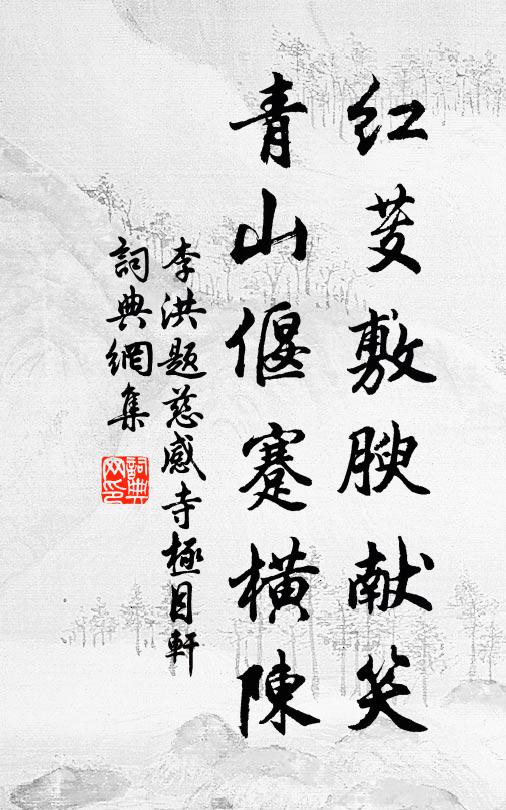 红芰敷腴献笑
青山偃蹇橫陳
李洪题慈感寺極目軒
詞典網集
詞典網印